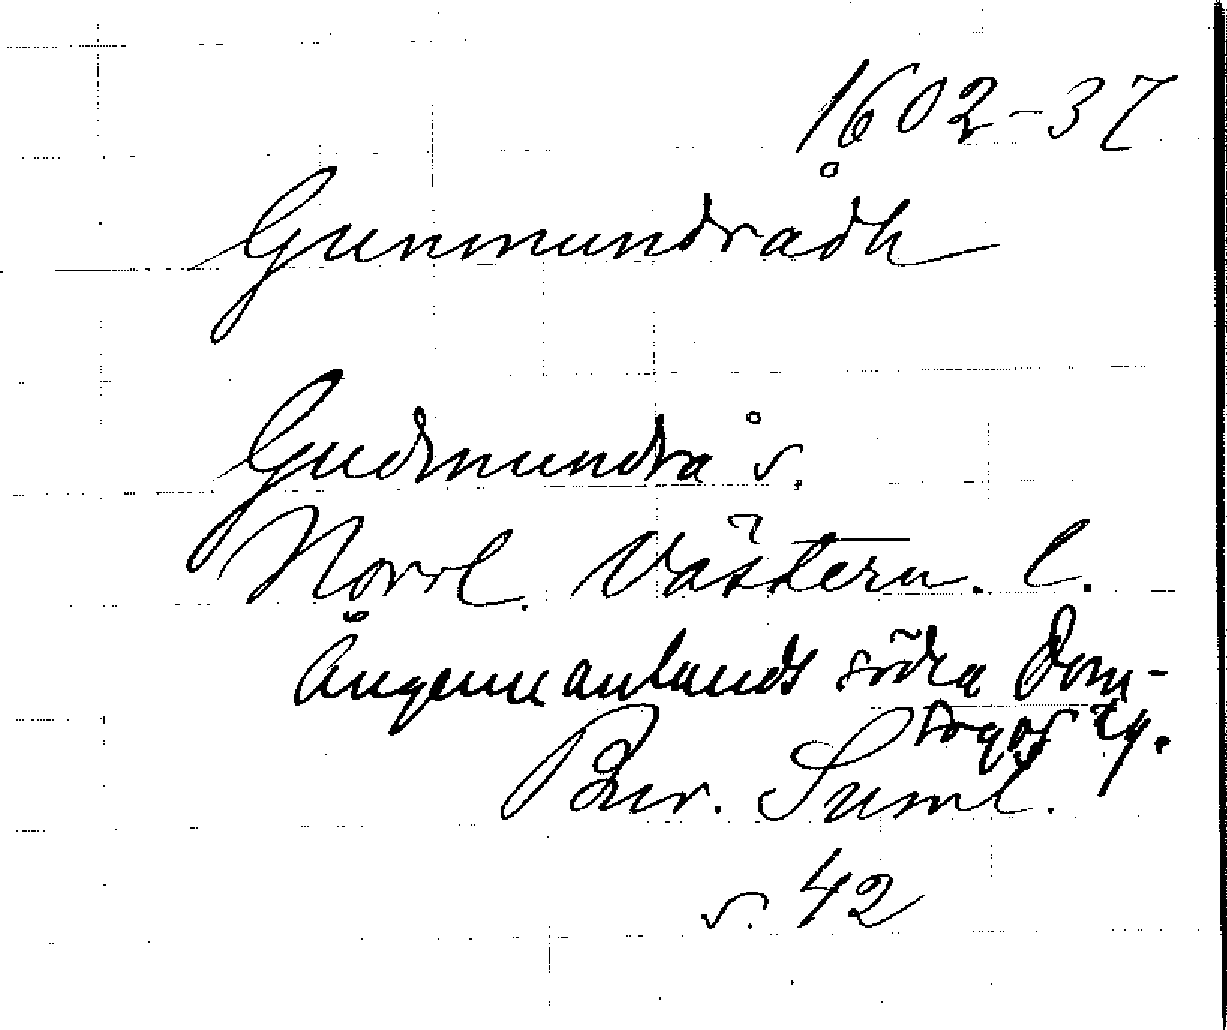 1602-37
Gunmundrådh
Gudmundrå s.
Norrl. Västern. l.
Ångermanlands södra Dom-
sagas
Bur. Suml.
s. 42